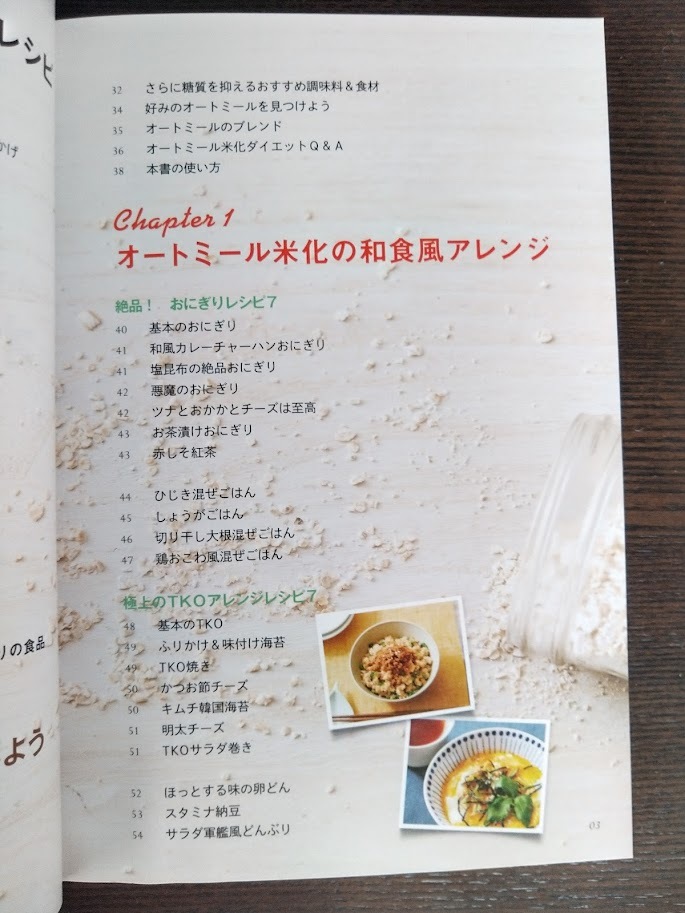 レシピ
かけ
りの食品
よう
32 さらに糖質を抑えるおすすめ調味料＆食材
34 好みのオートミールを見つけよう
35 オートミールのブレンド
36 オートミール米化ダイエットQ＆A
38 本書の使い方
Chapter 1
オートミール米化の和食風アレンジ
絶品！ おにぎりレシピ7
40 基本のおにぎり
41 和風カレーチャーハンおにぎり
41 塩昆布の絶品おにぎり
42 悪魔のおにぎり
42 ツナとおかかとチーズは至高
43 お茶漬けおにぎり
43 赤しそ紅茶
44 ひじき混ぜごはん
45 しょうがごはん
46 切り干し大根混ぜごはん
47 鶏おこわ風混ぜごはん
極上のTKOアレンジレシピ7
48 基本のTKO
49 ふりかけ＆味付け海苔
49 TKO焼き
50 かつお節チーズ
50 キムチ韓国海苔
51 明太チーズ
51 TKOサラダ巻き
52 ほっとする味の卵どん
53 スタミナ納豆
54 サラダ軍艦風どんぶり
03